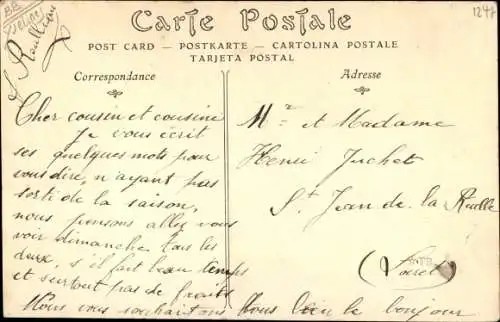 1247
Carte Postale
POST CARD — POSTKARTE — CARTOLINA POSTALE
TARJETA POSTAL
Correspondance
Cher cousin et cousine
Je vous écrit
ses quelques mots pour
vous dire, n'ayant pas
sorti de la saison,
nous pensons aller vous
voir dimanche tous les
deux, s'il fait beau temps
et surtout pas de froid
Nous vous souhaitons tous bien le bonjour
Adresse
Mr et Madame
Henri Juchet
St Jean de la Ruelle
(Loiret)